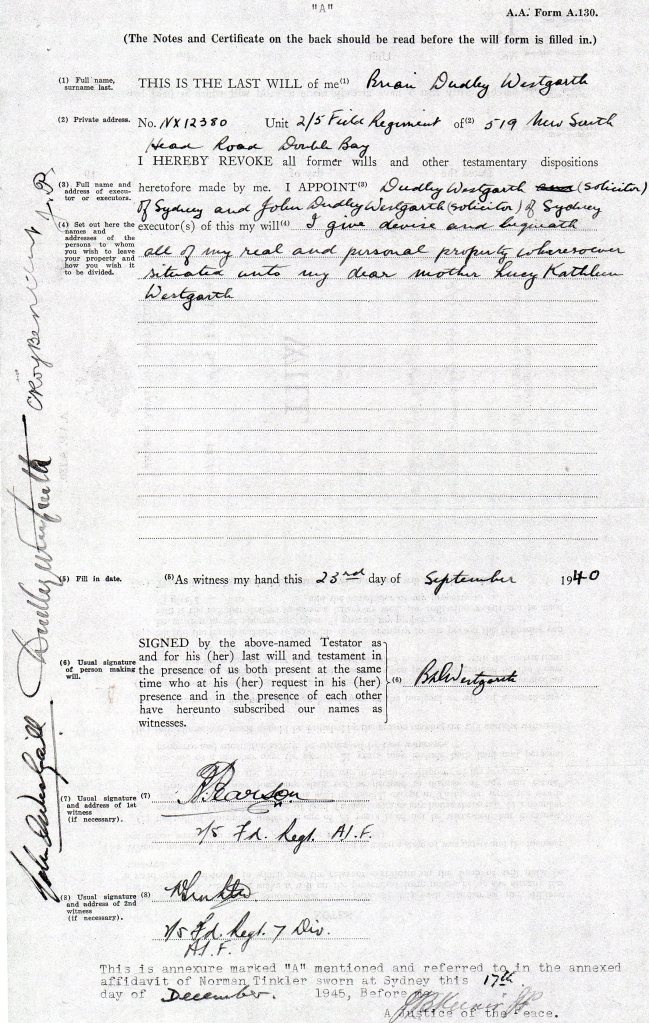 "A"
A.A. Form A.130.
(The Notes and Certificate on the back should be read before the will form is filled in.)
(1) Full name, surname last.
THIS IS THE LAST WILL of me(1) Brian Dudley Westgarth
(2) Private address.
No. NX12380 Unit 2/5 Field Regiment of(2) 519 New South
Head Road Double Bay
I HEREBY REVOKE all former wills and other testamentary dispositions
(3) Full name and address of executor or executors.
heretofore made by me. I APPOINT(3) Dudley Westgarth and (solicitor)
of Sydney and John Dudley Westgarth (solicitor) of Sydney
(4) Set out here the names and addresses of the persons to whom you wish to leave your property and how you wish it to be divided.
executor(s) of this my will(4) I give devise and bequeath
all of my real and personal property wheresoever
situated unto my dear mother Lucy Kathleen
Westgarth
(5) Fill in date.
(5)As witness my hand this 23rd day of September 1940
(6) Usual signature of person making will.
SIGNED by the above-named Testator as
and for his (her) last will and testament in
the presence of us both present at the same
time who at his (her) request in his (her)
presence and in the presence of each other
have hereunto subscribed our names as
witnesses.
(6) BDWestgarth
(7) Usual signature and address of 1st witness (if necessary).
(7) Pearson
2/5 Fd. Regt. A.I.F.
(8) Usual signature and address of 2nd witness (if necessary).
(8)
2/5 Fd. Regt. 7 Div.
A.I.F.
This is annexure marked "A" mentioned and referred to in the annexed
affidavit of Norman Tinkler sworn at Sydney this 17th
day of December. 1945, Before me
A Justice of the Peace.
Dudley Westgarth
J.P.